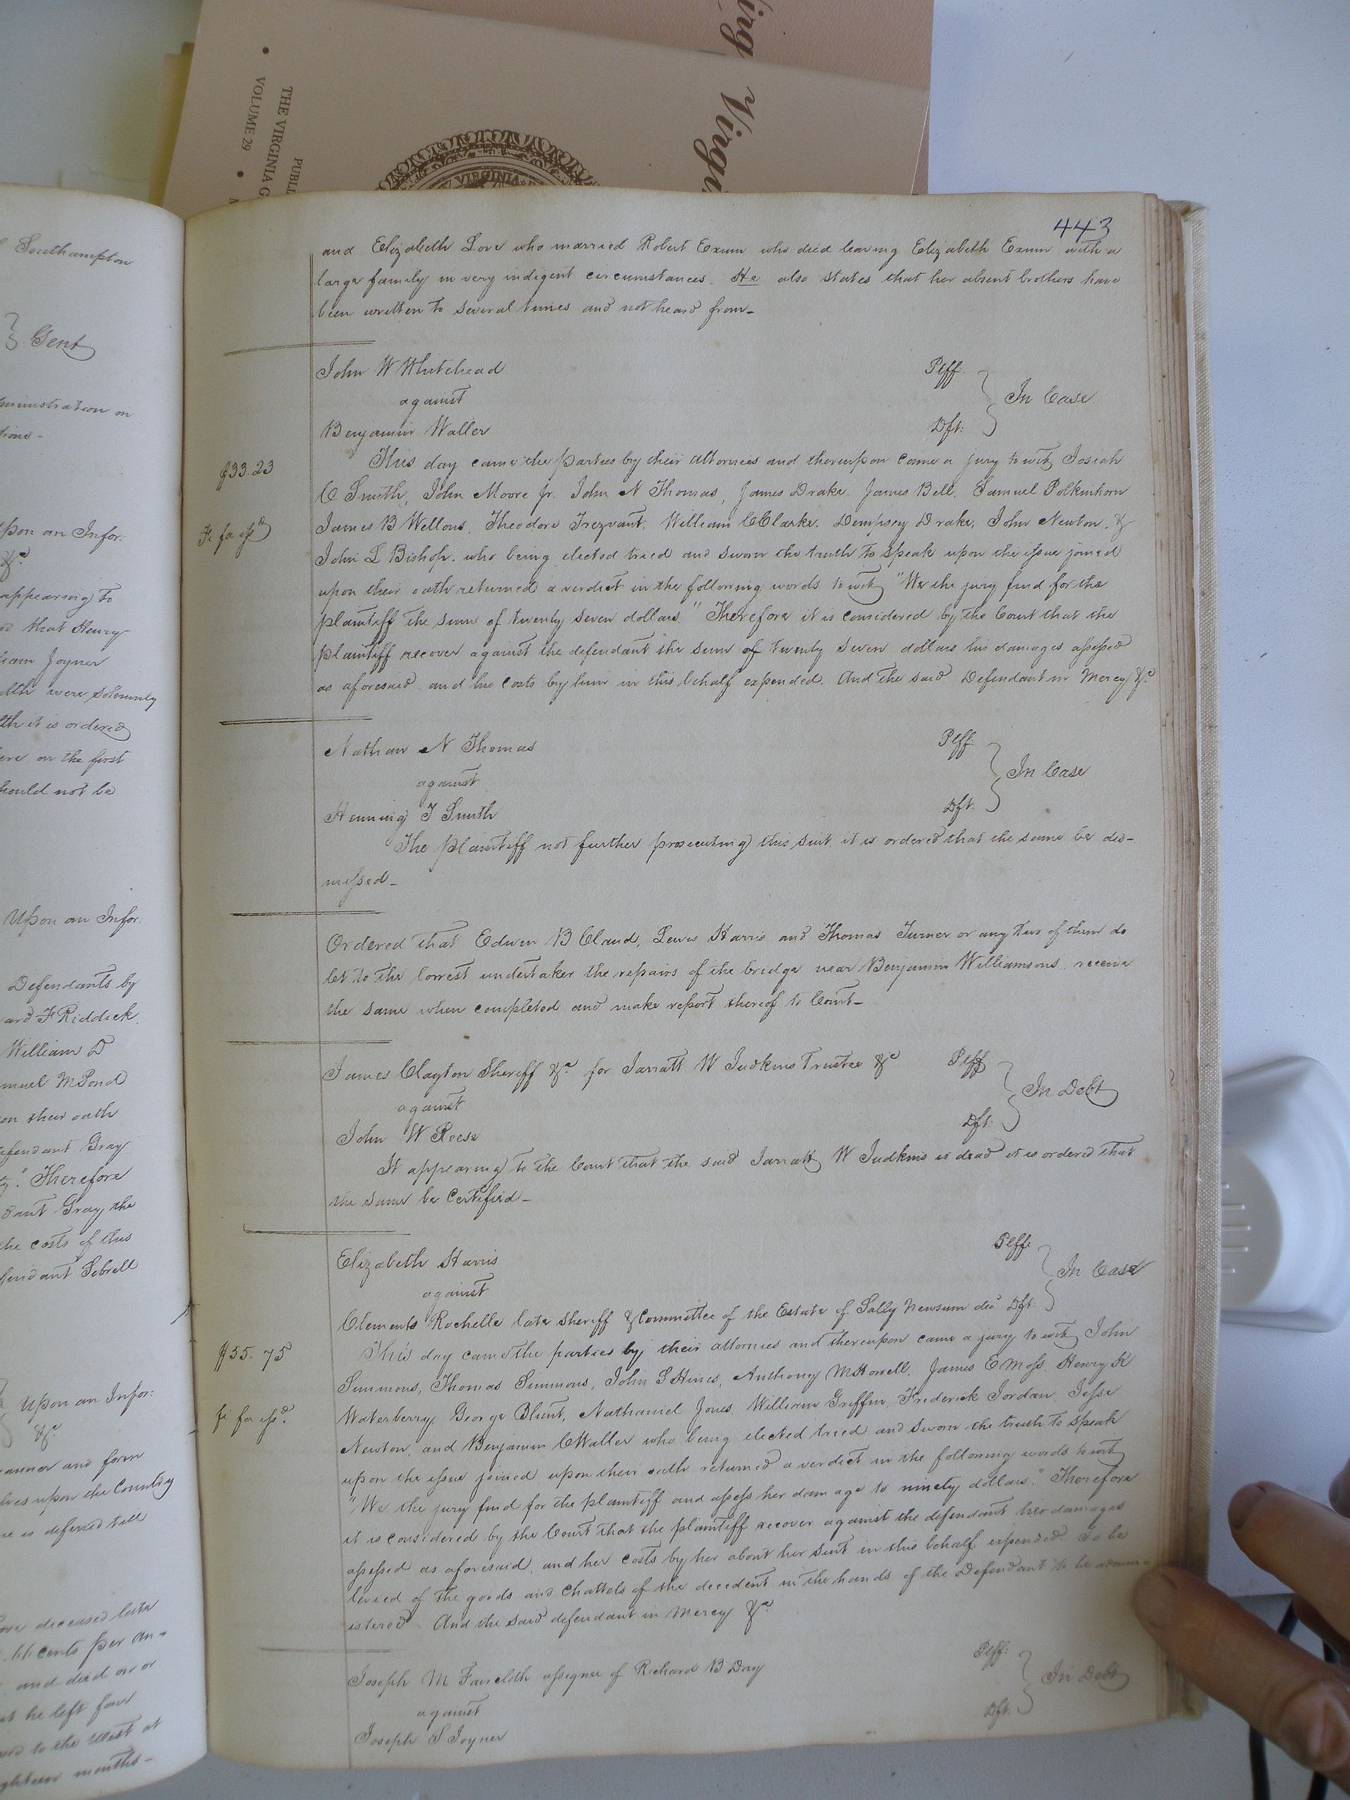 ing Virgi
THE VIRGINIA G
VOLUME 29
PUBLI
VIRGINIA
Southampton
Gent
ministration on
tions -
upon an Infor:
&c
appearing to
that Henry
liam Joyner
were solemnly
it is ordered
ere on the first
hould not be
Upon an Infor.
Defendants by
ard F Riddick
William D
muel M Pond
on their oath
efendant Gray
Therefore
dant Gray the
he costs of this
fendant Sebrell
Upon an Infor:
&c
manner and form
lves upon the Country
is deferred till
deceased late
cents per an-
and died on or
he left four
to the West at
ghteen months -
443
and Elizabeth Love who married Robert Exum who died leaving Elizabeth Exum with a
large family in very indigent circumstances. He also states that her absent brothers have
been written to several times and not heard from -
John W Whitehead Plff
against In Case
Benjamin Waller Dft:
$33.23
This day came the parties by their attornies and thereupon came a jury to wit, Josiah
C Smith, John Moore Jr. John N Thomas, James Drake. James Bell. Samuel Polkinhorn
Fi fa issd
James B Wellons, Theodore Trezvant, William C Clarke, Dempsey Drake, John Newton, &
John L Bishop. who being elected tried and sworn the truth to speak upon the issue joined
upon their oath returned a verdict in the following words to wit, "We the jury find for the
plaintiff the sum of twenty seven dollars." Therefore it is considered by the Court that the
plaintiff recover against the defendant the sum of twenty seven dollars his damages assessed
as aforesaid, and his costs by him in this behalf expended. And the said Defendant in Mercy &c
Nathan N Thomas Plff
against In Case
Henning T Smith Dft.
The plaintiff not further prosecuting this suit it is ordered that the same be dis-
missed -
Ordered that Edwin B Claud, Lewis Harris and Thomas Turner or any two of them do
let to the lowest undertaker the repairs of the bridge near Benjamin Williamsons, receive
the same when completed and make report thereof to Court -
James Clayton Sheriff &c for Jarratt W Judkins Trustee &c Plff
against In Debt
John W Reese Dft.
It appearing to the Court that the said Jarratt W Judkins is dead it is ordered that
the same be Certified -
Elizabeth Harris Plff.
against In Case
Clements Rochelle late Sheriff & Committee of the Estate of Sally Newsum dec Dft.
$55.75
This day came the parties by their attornies and thereupon came a jury to wit, John
Simmons, Thomas Simmons, John S Hines, Anthony M Howell, James E Moss, Henry K
fi fa issd.
Waterberry, George Blunt, Nathaniel Jones, William Griffin, Frederick Jordan, Jesse
Newton, and Benjamin C Waller who being elected tried and sworn the truth to speak
upon the issue joined upon their oath returned a verdict in the following words to wit,
"We the jury find for the plaintiff and assess her damage to ninety dollars." Therefore
it is considered by the Court that the plaintiff recover against the defendant her damages
assessed as aforesaid, and her costs by her about her suit in this behalf expended. To be
levied of the goods and chattels of the decedent in the hands of the Defendant to be admin-
istered. And the said defendant in Mercy &c
Joseph M Faircloth assignee of Richard B Day Plff:
against In Debt
Joseph S Joyner Dft.